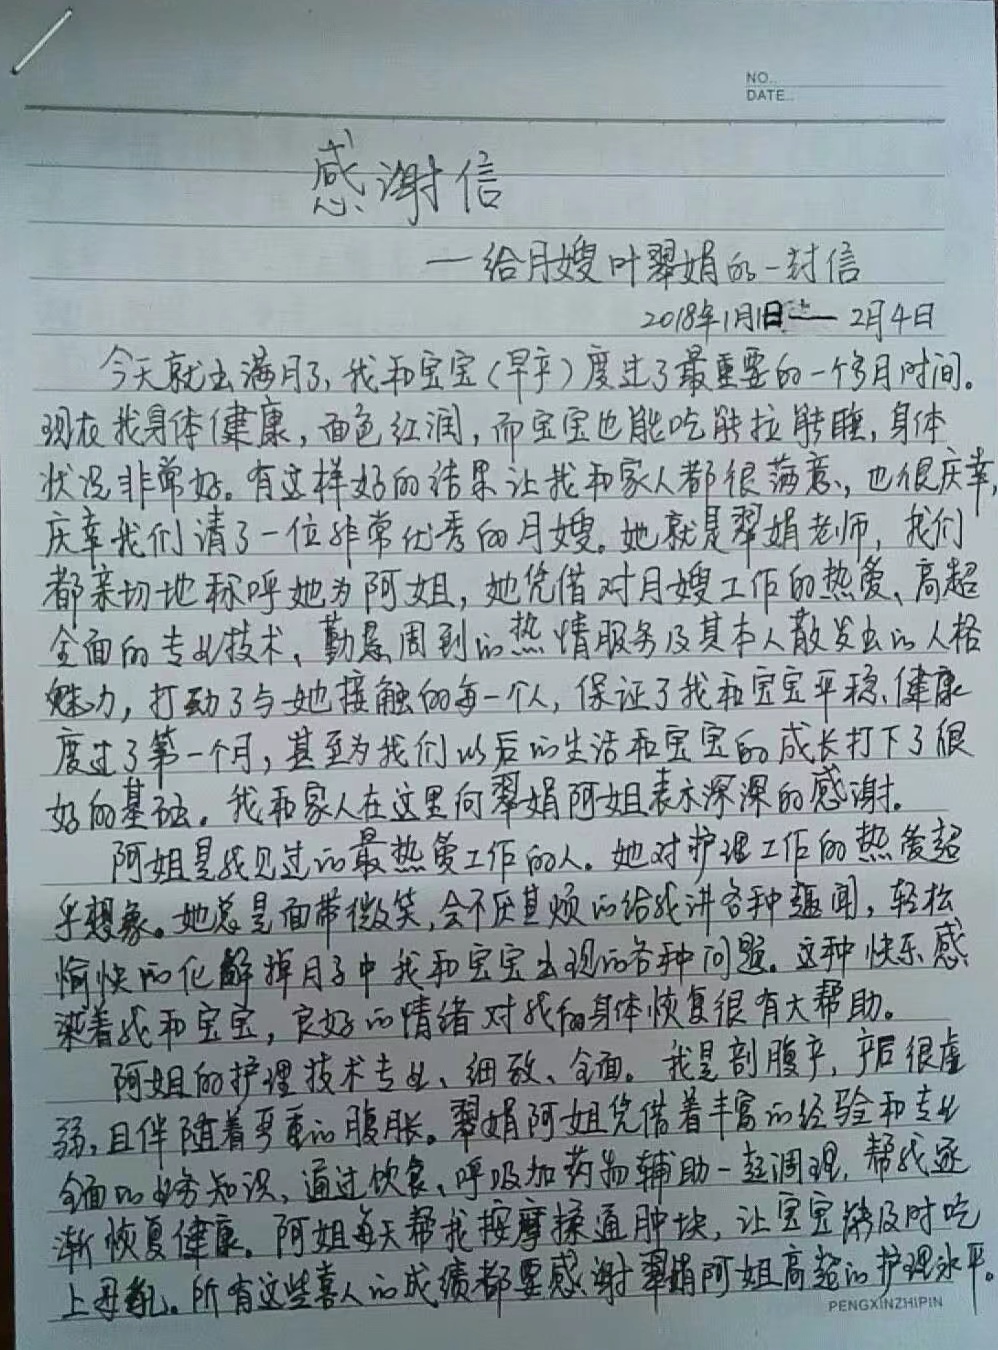 NO.
DATE
感谢信
一给月嫂叶翠娟的一封信
2018年1月1日一 2月4日
今天就出满月了，我和宝宝（早产）度过了最重要的一个多月时间。
现在我身体健康，面色红润，而宝宝也能吃能拉能睡，身体
状况非常好。有这样好的结果让我和家人都很满意，也很庆幸，
庆幸我们请了一位非常优秀的月嫂。她就是翠娟老师，我们
都亲切地称呼她为阿姐，她凭借对月嫂工作的热爱、高超
全面的专业技术、勤恳周到的热情服务及其本人散发出的人格
魅力，打动了与她接触的每一个人，保证了我和宝宝平稳、健康
度过了第一个月，甚至为我们以后的生活和宝宝的成长打下了很
好的基础。我和家人在这里向翠娟阿姐表示深深的感谢。
阿姐是我见过的最热爱工作的人。她对护理工作的热爱超
乎想象。她总是面带微笑，会不厌其烦的给我讲各种趣闻，轻松
愉快的化解掉月子中我和宝宝出现的各种问题。这种快乐感
染着我和宝宝，良好的情绪对我的身体恢复很有大帮助。
阿姐的护理技术专业、细致、全面。我是剖腹产，产后很虚
弱，且伴随着严重的腹胀。翠娟阿姐凭借着丰富的经验和专业
全面的业务知识，通过饮食、呼吸加药物辅助一起调理，帮我逐
渐恢复健康。阿姐每天帮我按摩揉通肿块，让宝宝能及时吃
上母乳。所有这些喜人的成绩都要感谢翠娟阿姐高超的护理水平。
PENGXINZHIPIN